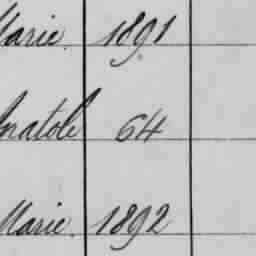 Marie. 1891
Anatole 64
Marie. 1892